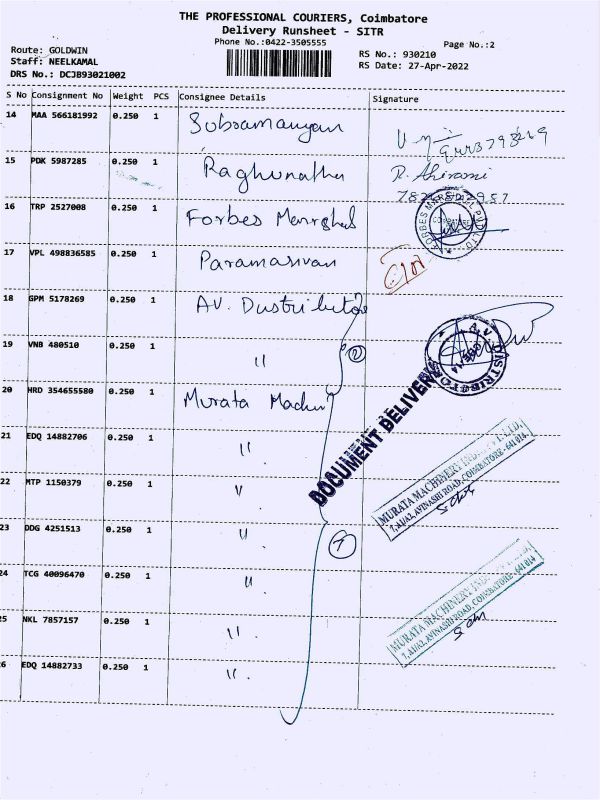 THE PROFESSIONAL COURIERS, Coimbatore
Delivery Runsheet - SITR
Phone No.:0422-3505555
Page No.:2
Route: GOLDWIN
RS No.: 930210
Staff: NEELKAMAL
RS Date: 27-Apr-2022
DRS No.: DCJB93021002
S No Consignment No Weight PCS Consignee Details Signature
14 MAA 566181992 0.250 1 Subramanyan
15 PDK 5987285 0.250 1 Raghunatha R. Abirami
16 TRP 2527008 0.250 1 Forbes Marshal
FORBES MARSHALL PVT LTD
17 VPL 498836585 0.250 1 Paramasivan
18 GPM 5178269 0.250 1 AV. Dustributor
A.V. DISTRIBUTO
19 VNB 480510 0.250 1 "
DOCUMENT DELIVERY
20 HRD 354655580 0.250 1 Murata Machin
21 EDQ 14882706 0.250 1 "
MURATA MACHINERY IND
7, AVINASHI ROAD, COIMBATORE - 641 014
22 MTP 1150379 0.250 1 "
23 DDG 4251513 0.250 1 "
7
24 TCG 40096470 0.250 1 "
MURATA MACHINERY
7, AVINASHI ROAD, COIMBATORE - 641 014
25 NKL 7857157 0.250 1 "
26 EDQ 14882733 0.250 1 "